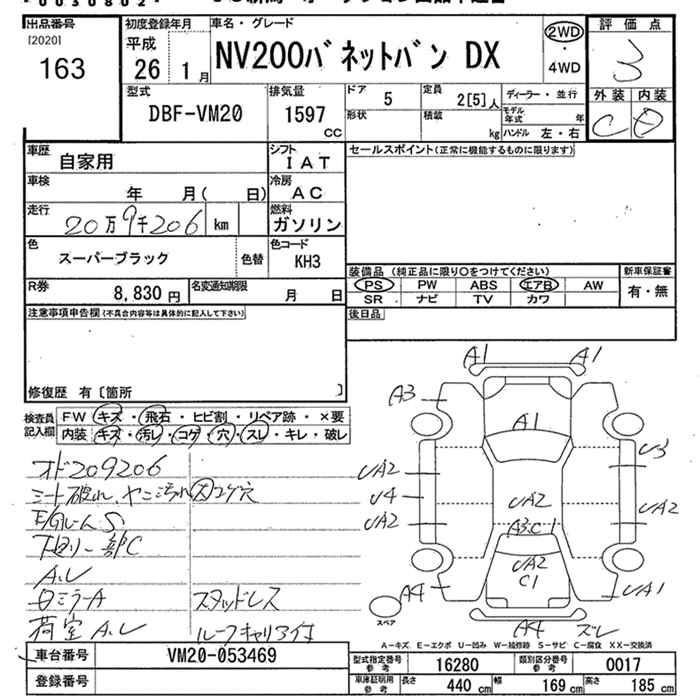 出品番号 初度登録年月 車名・グレード 評価点
[2020] 平成 NV200バネットバン DX 2WD ・ 4WD 3
163 26 1月
外装 内装
型式 排気量 ドア 5 定員 2[5]人 ディーラー・並行 C D
DBF-VM20 1597 CC 形状 積載 kg モデル年式 年 ハンドル 左・右
車歴 自家用 シフト IAT セールスポイント(正常に機能するものに限ります)
車検 年 月( 日) 冷房 AC
走行 20万9千206 km 燃料 ガソリン
色 スーパーブラック 色替 色コード KH3
装備品 (純正品に限り○をつけてください) 新車保証書
R券 8,830円 名変通知期限 月 日 PS PW ABS エアB AW 有・無
SR ナビ TV カワ
注意事項申告欄(不具合内容等は具体的に記入して下さい) 後日品
修復歴 有[箇所 ]
検査員記入欄 FW キズ・飛石・ヒビ割・リペア跡・×要
内装 キズ・汚レ・コゲ・穴・スレ・キレ・破レ
A1 A1
A3 A1
U3
オド209206
シート破れ、ヤニ汚れ大コゲ穴
UA2 U4 UA2 UA2 UA2
A3.C1
下廻り一部C
UA2 C1
A.U
A4 UA1
ロミラーA スタッドレス
スペア
荷室A.U ルーフキャリア付
A4 ズレ
A=キズ E=エクボ U=凹み W=補修跡 S=サビ C=腐食 XX=交換済
車台番号 VM20-053469
型式指定番号 参考 16280 類別区分番号 参考 0017
登録番号
車庫証明用 参考 長さ 440 cm 幅 169 cm 高さ 185 cm